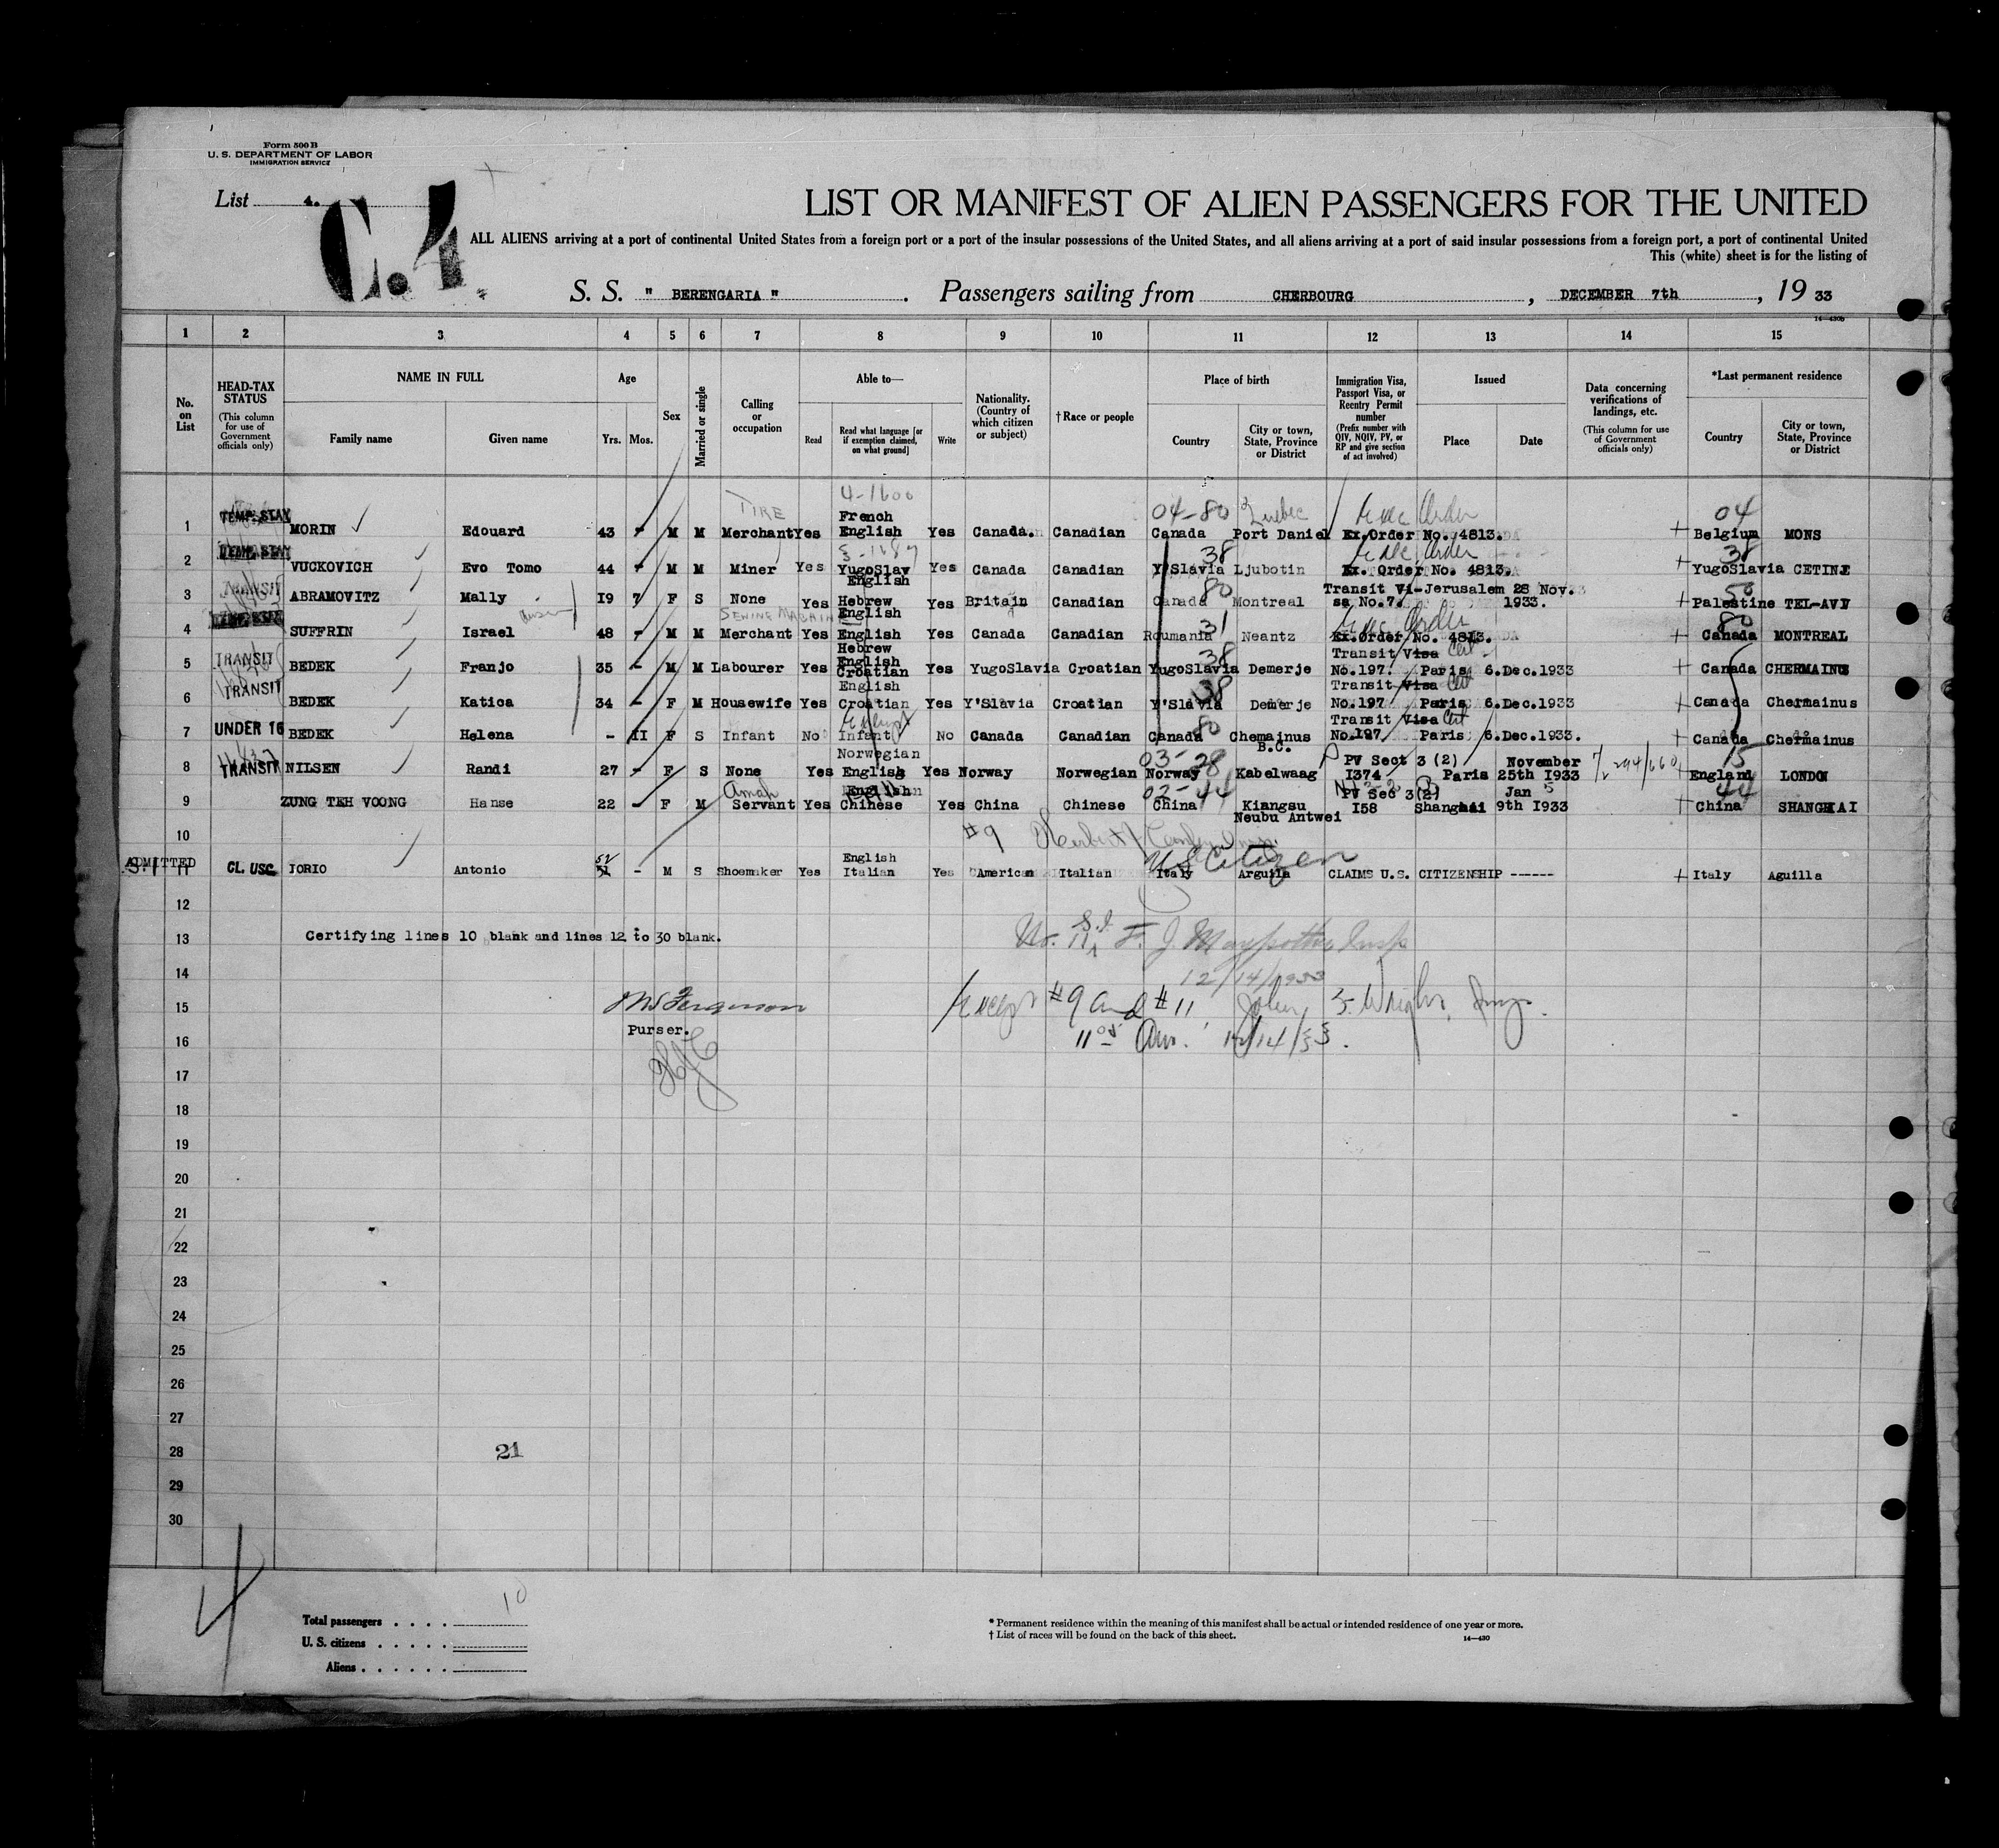 Form 500 B
U. S. DEPARTMENT OF LABOR
IMMIGRATION SERVICE
List 4.
C.4.
LIST OR MANIFEST OF ALIEN PASSENGERS FOR THE UNITED
ALL ALIENS arriving at a port of continental United States from a foreign port or a port of the insular possessions of the United States, and all aliens arriving at a port of said insular possessions from a foreign port, a port of continental United
This (white) sheet is for the listing of
S. S. " BERENGARIA " . Passengers sailing from CHERBOURG , DECEMBER 7th , 19 33
14-430b
1 2 3 4 5 6 7 8 9 10 11 12 13 14 15
No. on List
HEAD-TAX STATUS (This column for use of Government officials only)
NAME IN FULL Family name Given name
Age Yrs. Mos.
Sex
Married or single
Calling or occupation
Able to— Read Read what language [or if exemption claimed, on what ground] Write
Nationality. (Country of which citizen or subject)
†Race or people
Place of birth Country City or town, State, Province or District
Immigration Visa, Passport Visa, or Reentry Permit number (Prefix number with QIV, NQIV, PV, or RP and give section of act involved)
Issued Place Date
Data concerning verifications of landings, etc. (This column for use of Government officials only)
*Last permanent residence Country City or town, State, Province or District
TIRE 4-1600 04-80 Quebec Exec Order 04
1 TEMP. STAY MORIN Edouard 43 - M M Merchant Yes French English Yes Canada. Canadian Canada Port Daniel Ex. Order No. 4813. Belgium MONS
38 Exec Order 38
2 TEMP. STAY VUCKOVICH Evo Tomo 44 - M M Miner Yes YugoSlav English Yes Canada Canadian Y'Slavia Ljubotin Ex. Order No. 4813. YugoSlavia CETINJE
80 50
3 TRANSIT ABRAMOVITZ Mally 19 7 F S None Yes Hebrew English Yes Britain Canadian Canada Montreal Transit Vi- sa No.7. Jerusalem 28 Nov. 1933. Palestine TEL-AVIV
SEWING MACHINE 31 Exec Order 80
4 SUFFRIN Israel 48 - M M Merchant Yes English Hebrew Yes Canada Canadian Roumania Neantz Ex.Order No. 4813. Canada MONTREAL
38 Cert
5 TRANSIT BEDEK Franjo 35 - M M Labourer Yes English Croatian Yes YugoSlavia Croatian YugoSlavia Demerje Transit Visa No.197. Paris 6.Dec.1933 Canada CHERMAINUS
38 Cert
6 TRANSIT BEDEK Katica 34 - F M Housewife Yes English Croatian Yes Y'Slavia Croatian Y'Slavia Demerje Transit Visa No.197 Paris 6.Dec.1933 Canada Chermainus
80 Cert
7 UNDER 16 BEDEK Helena - II F S Infant No Infant No Canada Canadian Canada Chemainus B.C. Transit Visa No.197 Paris 6.Dec.1933. Canada Chermainus
03-28 15
8 TRANSIT NILSEN Randi 27 - F S None Yes Norwegian English Yes Norway Norwegian Norway Kabelwaag PV Sect 3 (2) I374 Paris November 25th I933 England LONDON
Amah 02-44 44
9 ZUNG TEH VOONG Hanse 22 - F M Servant Yes English Chinese Yes China Chinese China Kiangsu Neubu Antwei PV Sec 3(2) I58 Shanghai Jan 9th I933 China SHANGHAI
10 #9
ADMITTED U S Citizen
11 CL. USC IORIO Antonio 52 - M S Shoemaker Yes English Italian Yes American Italian Italy Arguila CLAIMS U.S. CITIZENSHIP ------ Italy Aguilla
12
13 Certifying lines 10 blank and lines 12 to 30 blank.
14 12/14/1933
15 Except #9 and #11 John
Purser.
16 12/14/33.
17
18
19
20
21
22
23
24
25
26
27
28 21
29
30
4
Total passengers . . . . 10
U. S. citizens . . . . .
Aliens . . . . . .
* Permanent residence within the meaning of this manifest shall be actual or intended residence of one year or more.
† List of races will be found on the back of this sheet.
14-430